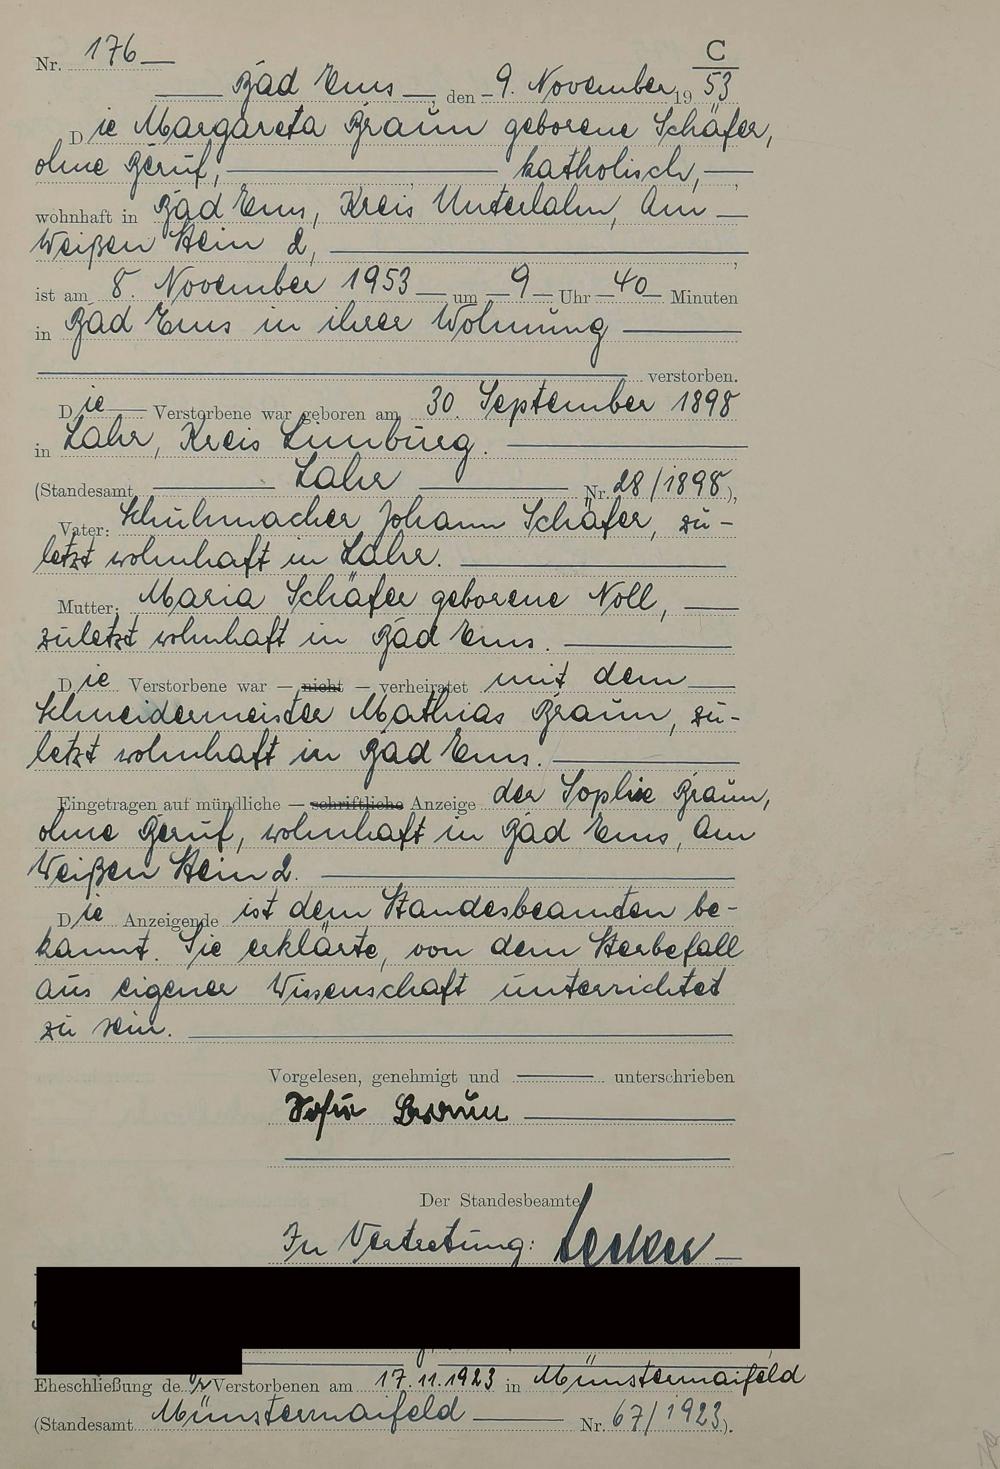 Nr. 176
C
Bad Ems, den 9. November 19 53
Die Margareta Braun geborene Schäfer,
ohne Beruf, katholisch,
wohnhaft in Bad Ems, Kreis Unterlahn, Am
Weißen Stein 2,
ist am 8. November 1953 um 9 Uhr 40 Minuten
in Bad Ems in ihrer Wohnung
verstorben.
Die Verstorbene war geboren am 30. September 1898
in Lahr, Kreis Limburg.
(Standesamt Lahr Nr. 28/1898),
Vater: Schuhmacher Johann Schäfer, zu-
letzt wohnhaft in Lahr.
Mutter: Maria Schäfer geborene Noll,
zuletzt wohnhaft in Bad Ems.
Die Verstorbene war — nicht — verheiratet mit dem
Schneidermeister Mathias Braun, zu-
letzt wohnhaft in Bad Ems.
Eingetragen auf mündliche — schriftliche Anzeige der Sophie Braun,
ohne Beruf, wohnhaft in Bad Ems, Am
Weißen Stein 2.
Die Anzeigende ist dem Standesbeamten be-
kannt. Sie erklärte, von dem Sterbefall
aus eigener Wissenschaft unterrichtet
zu sein.
Vorgelesen, genehmigt und unterschrieben
Sofie Braun
Der Standesbeamte
In Vertretung:
Eheschließung der Verstorbenen am 17.11.1923 in Münstermaifeld
(Standesamt Münstermaifeld Nr. 67/1923).